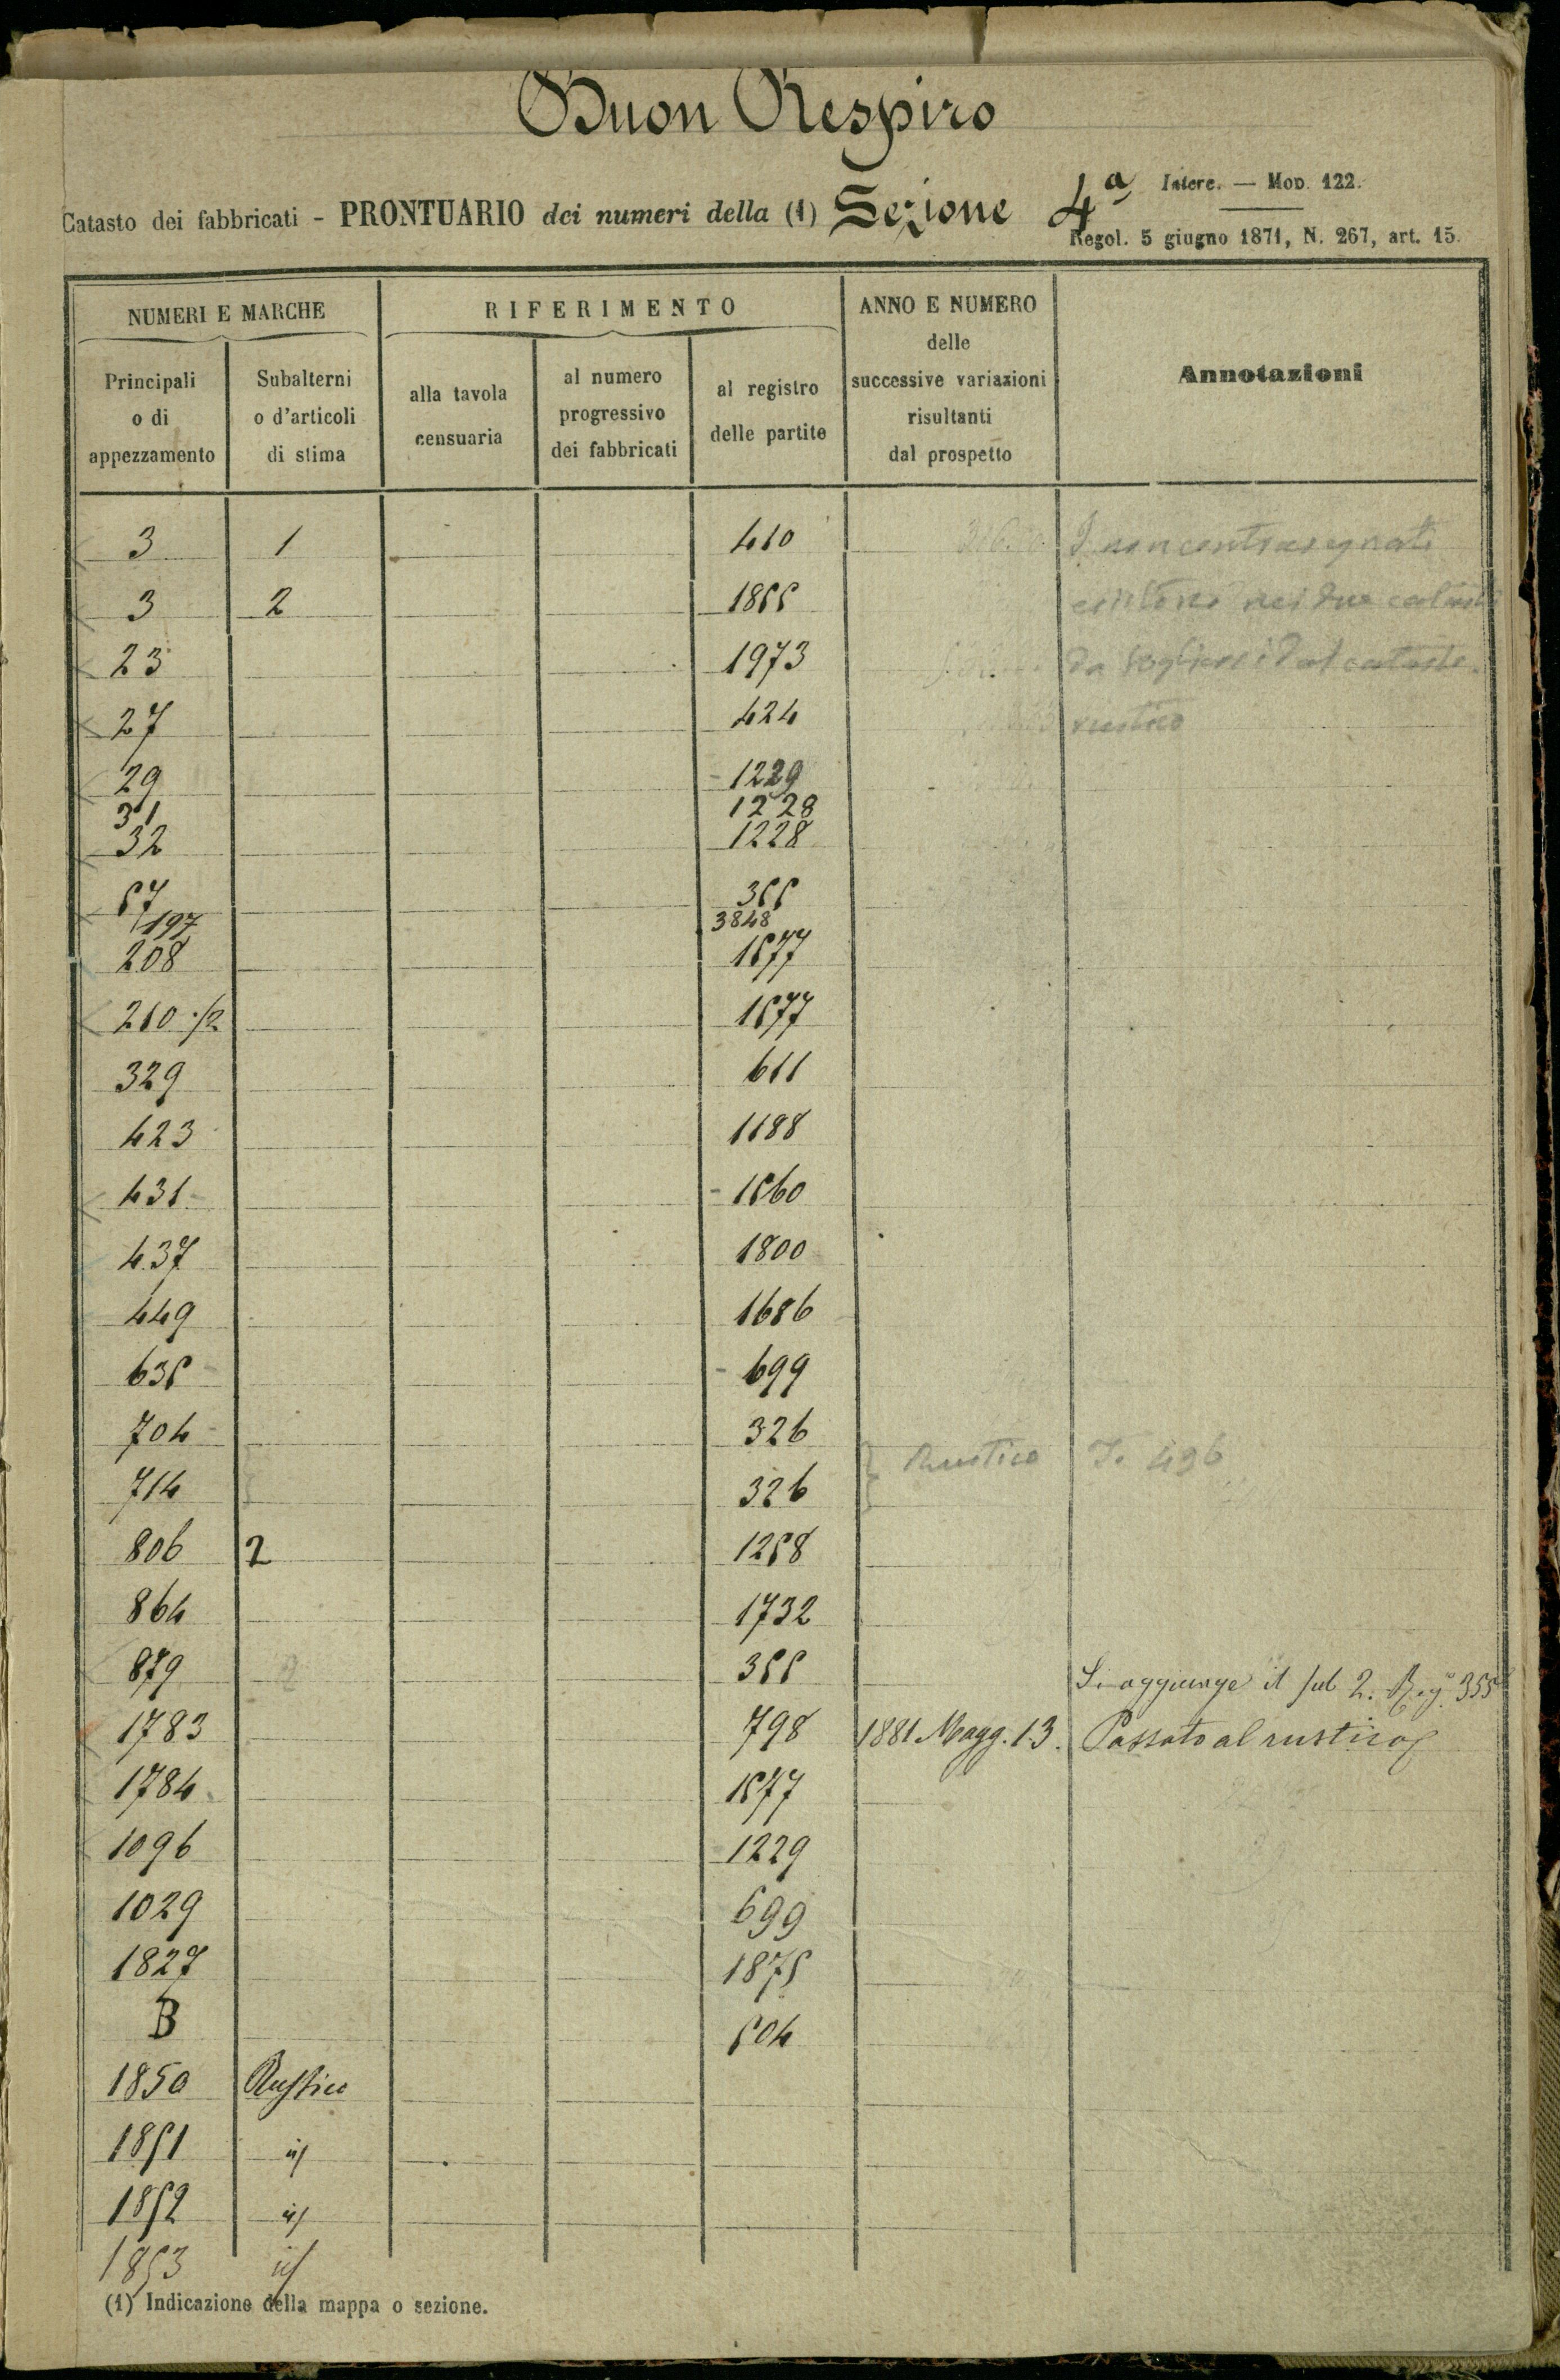 Buon Respiro
Catasto dei fabbricati - PRONTUARIO dei numeri della (1) Sezione 4ª
Interc. — Mod. 122.
Regol. 5 giugno 1871, N. 267, art. 15.
NUMERI E MARCHE
RIFERIMENTO
ANNO E NUMERO
delle
successive variazioni
risultanti
dal prospetto
Annotazioni
Principali
o di
appezzamento
Subalterni
o d'articoli
di stima
alla tavola
censuaria
al numero
progressivo
dei fabbricati
al registro
delle partite
3 1 410 I non contrassegnati
3 2 1855 esistono nei due catasti
23 1973 da togliersi dal catasto
27 424 rustico
29 1229
31 1228
32 1228
57 355
197 3848
208 1577
210 ./2 1577
329 611
423 1188
431 1560
437 1800
449 1686
635 699
704 326 Rustico
714 326
806 2 1258
864 1732
879 2 355 Si aggiunge il sub 2. Reg. 355
1783 798 1881 Magg. 13. Passato al rustico
1784 1577
1096 1229
1029 699
1827 1875
B 504
1850 Rustico
1851 id
1852 id
1853 id
(1) Indicazione della mappa o sezione.